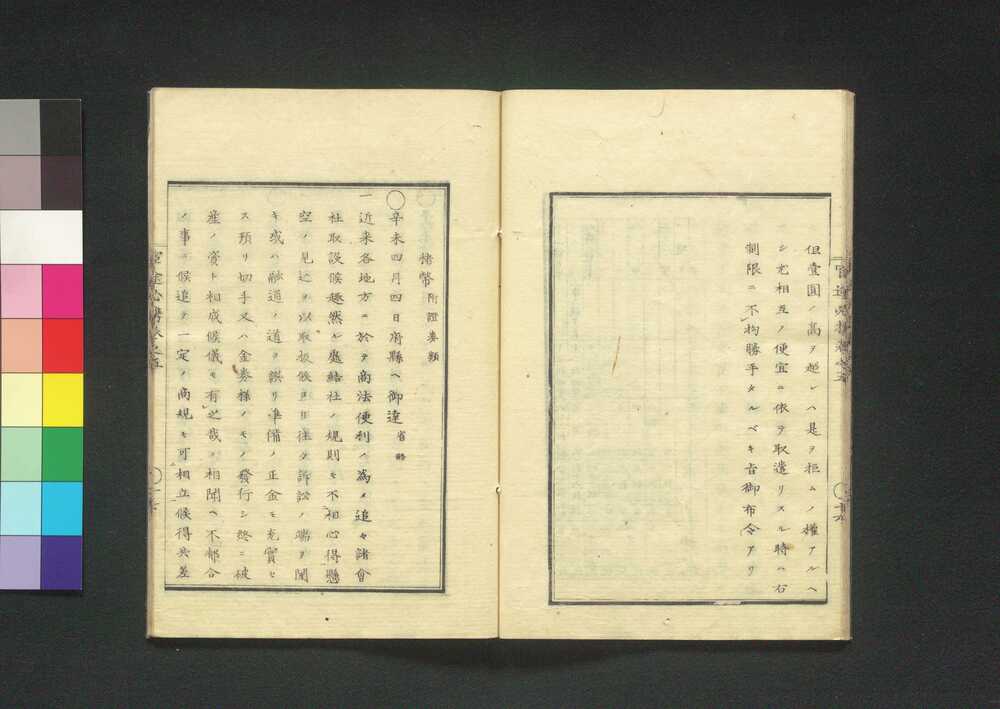 但壹圓ノ高ヲ超レハ是ヲ拒ムノ權アルヘ
シ尤相互ノ便宜ニ依テ取遣リスル時ハ右
制限ニ不拘勝手タルベキ旨御布令アリ
楮幣附證券類
○辛未四月四日府縣ヘ御達省略
一近来各地方ニ於テ商法便利ノ為メ追々諸會
社取設候趣然ル處結社ノ規則モ不相心得懸
空ノ見込ヲ以取扱候ヨリ往々訴訟ノ端ヲ開
キ或ハ融通ノ道ヲ誤リ準備ノ正金モ充實セ
ス預リ切手又ハ金券樣ノモノ發行シ終ニ破
産ノ資ト相成候儀モ有之哉ノ相聞ヘ不都合
ノ事ニ候追テ一定ノ商規モ可相立候得共差